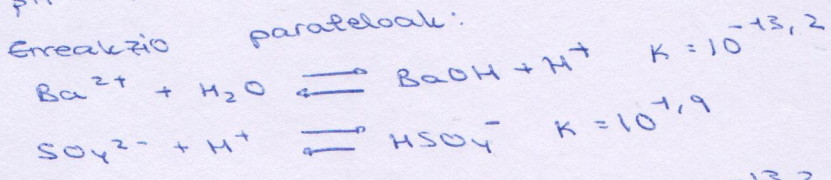 Erreakzio paraleloak:
Ba²⁺ + H₂O ⇌ BaOH + H⁺ K = 10⁻¹³,²
SO₄²⁻ + H⁺ ⇌ HSO₄⁻ K = 10⁻¹,⁹